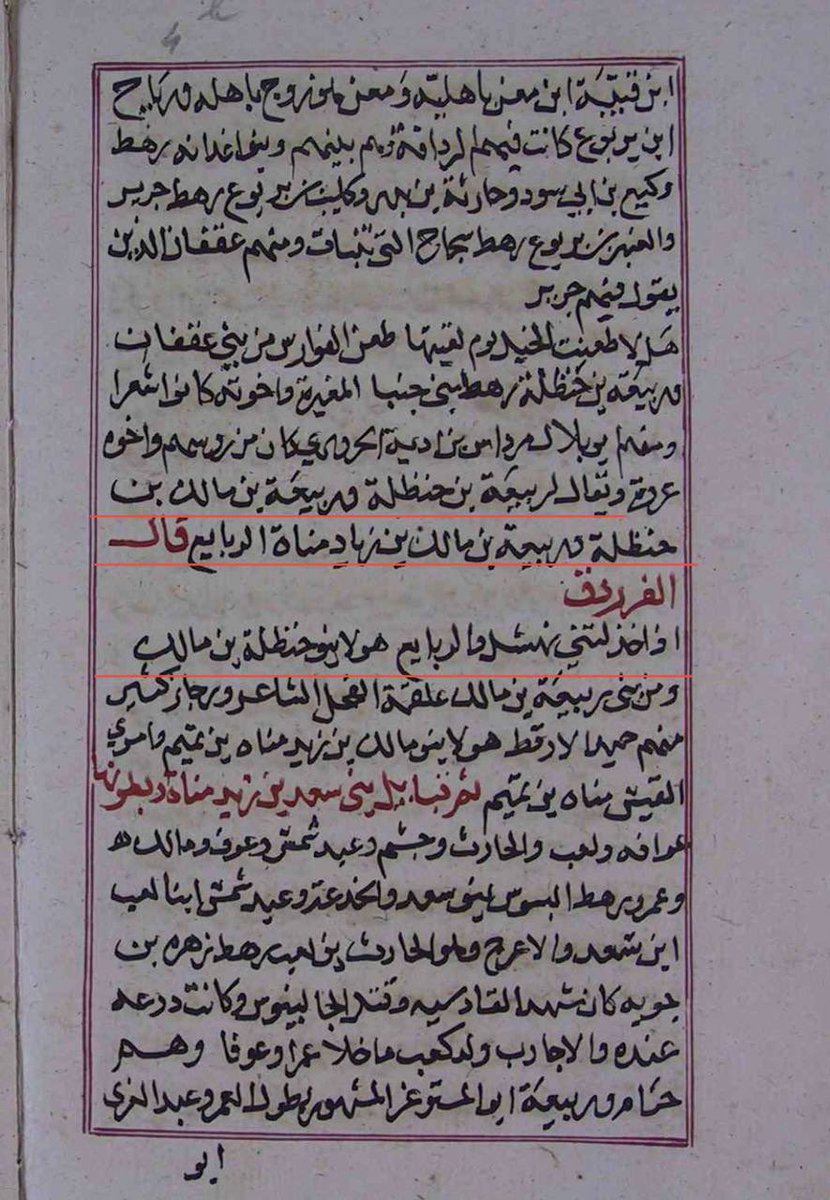 4
ابن قتيبة ابن معن باهلية ومعن هو زوج باهله ورياح
ابن يربوع كانت فيهم الردافة وهم بينهم وبنو اغدانه رهط
وكيع بن ابي سود وحارثة بن بدر وكليب بن يربوع رهط جرير
والعنبر بن يربوع رهط سجاح التي تنبات ومنهم عقفان الذين
يقول فيهم جرير
هلا طعنت الخيل يوم لقيتها طعن الفوارس من بني عقفان
وربيعة بن حنظلة رهط بني جنبا المغيرة واخوته كانوا شعرا
ومنهم بو بلال مرداس بن ادية الحروري كان من روسهم واخوه
عروة ويقال لربيعة بن حنظلة وربيعة بن مالك بن
حنظلة وربيعة بن مالك بن زياد مناة الربايع قال
الفرزدق
اذا خذلتني نهشل والربايع هولا بنو حنظلة بن مالك
ومن بني ربيعة بن مالك علقمة الفحل الشاعر ورجاز كثير
منهم حميد الارقط هولا بنو مالك بن زيد مناه بن تميم وامري
القيس مناه بن تميم ثم قبايل بني سعد بن زيد مناة وبطونها
عوافه ولعب والحارث وجشم وعبد شمس وعوف ومالك
وعمرو رهط البسوس بنو سعد وعبد شمس ابنا لعب
ابن سعد والاعرج وهو الحارث بن لعب رهط زهره بن
جويه كان شهد القادسيه وقتل الجالينوس وكانت درعه
عنده والاجارب ولد كعب ماخلا عمرا وعوفا وهم
حرام وربيعة ابو المستوغر المشهور بطول العمر وعبد العزى
ابو